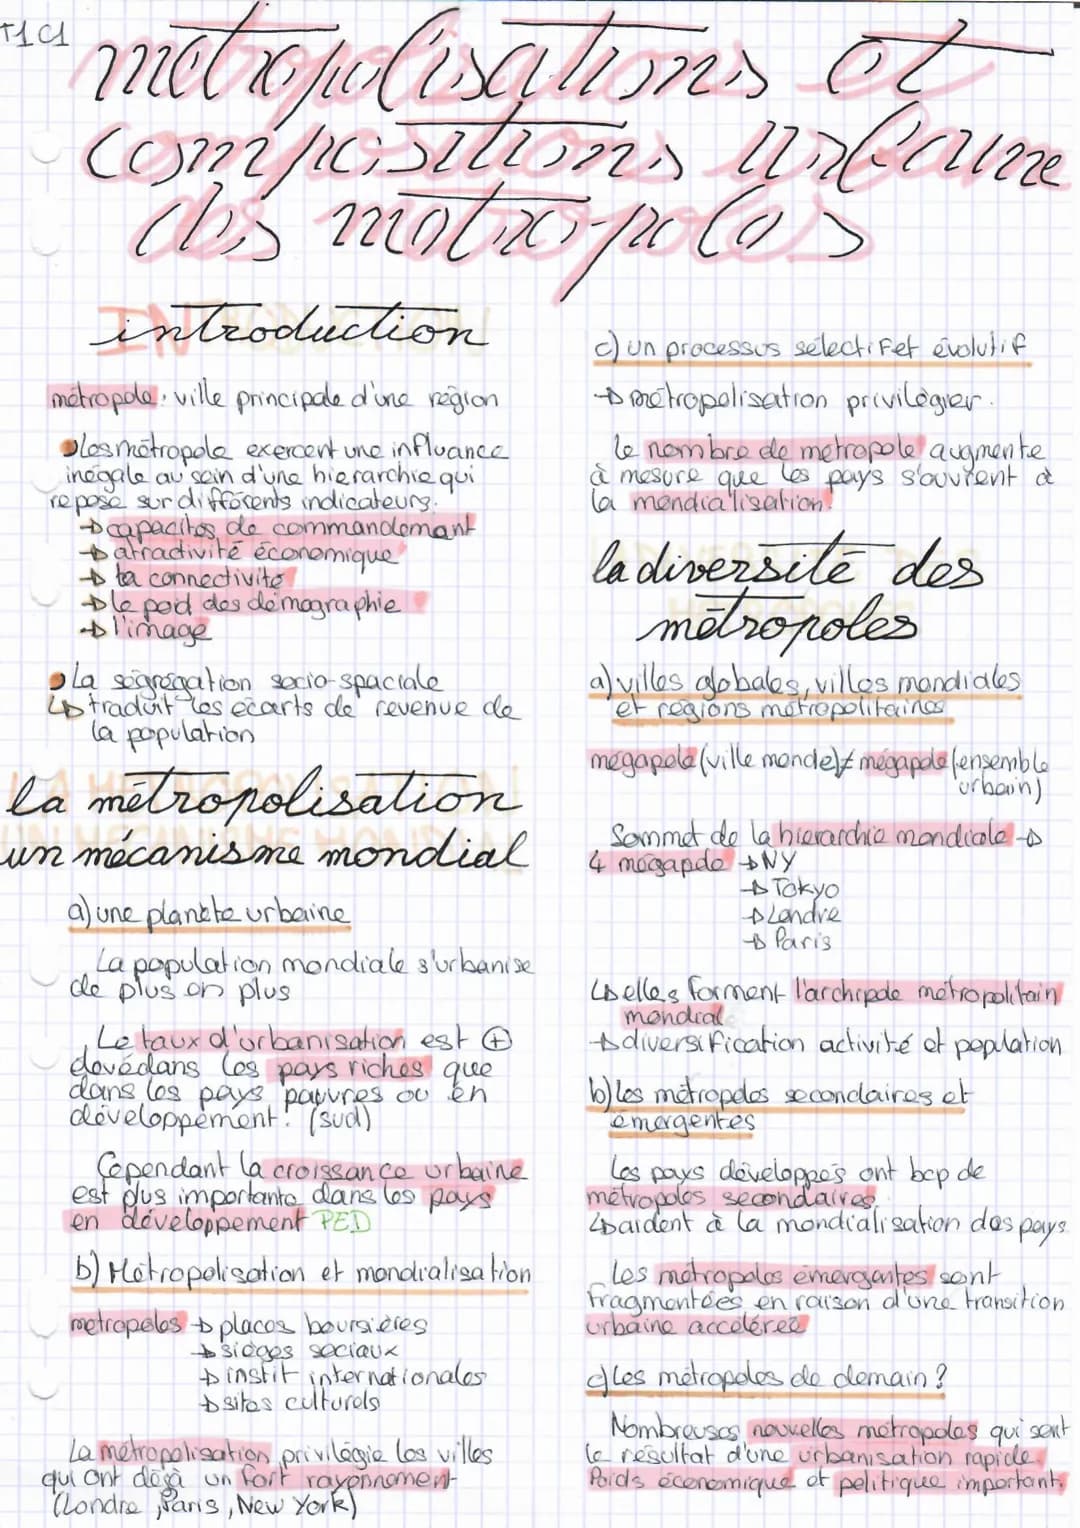 T1C1
métropolisations et
compositions urbaine
des métropoles
introduction
métropole: ville principale d'une région
Les métropole exercent une influance
inégale au sein d'une hierarchie qui
repose sur différents indicateurs.
→ capacités de commandement
→ atractivité économique
→ la connectivité
→ le poid des démographie
→ l'image
La ségrégation socio-spaciale
↳ traduit les écarts de revenue de
la population
la métropolisation
un mécanisme mondial
a) une planète urbaine
La population mondiale s'urbanise
de plus en plus
Le taux d'urbanisation est ⊕
élevé dans les pays riches que
dans les pays pauvres ou en
développement. (sud)
Cependant la croissance urbaine
est plus importante dans les pays
en développement PED
b) Métropolisation et mondialisation
metropoles → places boursières
→ sièges sociaux
→ instit internationales
→ sites culturels
La métropolisation privilégie les villes
qui ont déjà un fort rayonnement
(Londre, Paris, New York)
c) un processus sélectif et évolutif
→ métropolisation privilègier.
le nombre de métropole augmente
à mesure que les pays s'ouvrent à
la mondialisation.
la diversité des
métropoles
a) villes globales, villes mondiales
et régions métropolitaines
mégapole (ville monde) ≠ mégapole (ensemble
urbain)
Sommet de la hierarchie mondiale →
4 mégapole → NY
→ Tokyo
→ Londre
→ Paris
↳ elles forment l'archipole métropolitain
mondial
→ diversification activité et population
b) Les métropoles secondaires et
émergentes
Les pays développés ont bcp de
métropoles secondaires
↳ aident à la mondialisation des pays
Les métropoles émergentes sont
fragmentées en raison d'une transition
urbaine accélérée
c) Les métropoles de demain ?
Nombreuses nouvelles métropoles qui sont
le résultat d'une urbanisation rapide.
Poids économique et politique important.